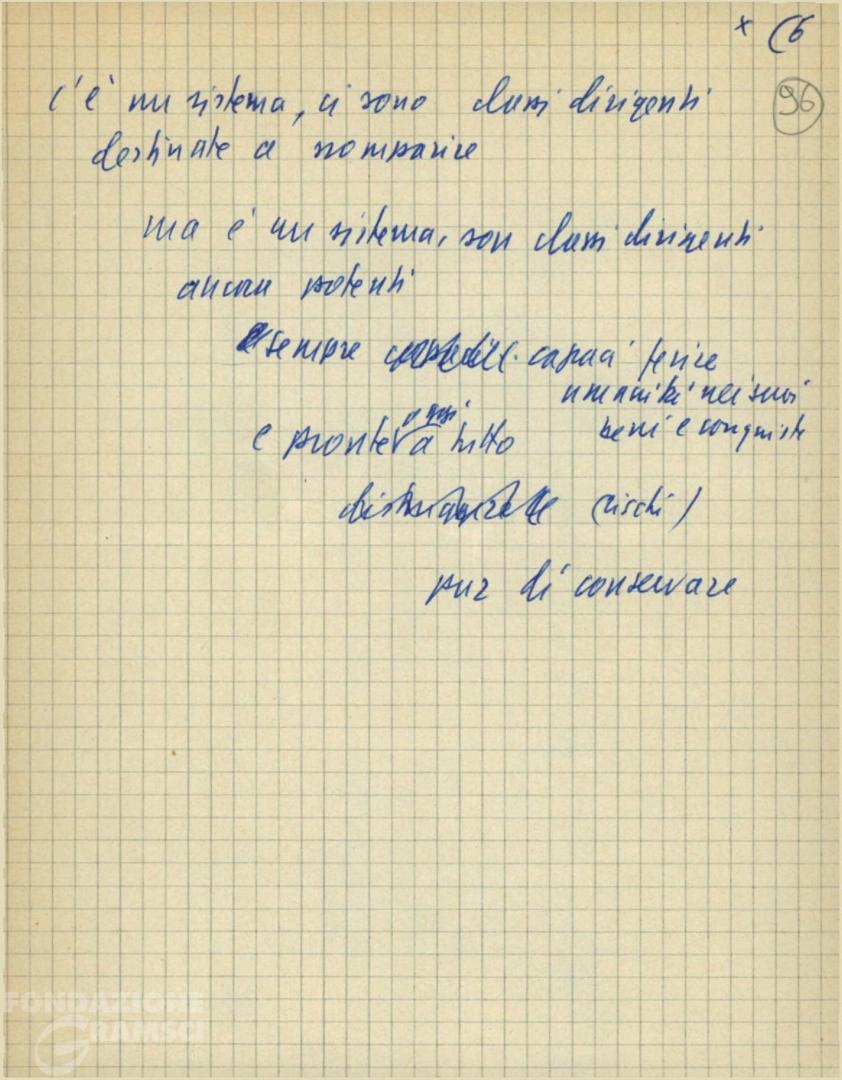 x (6
96
C'è un sistema, ci sono classi dirigenti
destinate a scomparire
ma è un sistema, son classi dirigenti
ancora potenti
e sempre capaci ferire
umanità nei suoi
beni e conquiste
oggi
e pronte a tutto
(rischi)
pur di conservare
FONDAZIONE
GRAMSCI